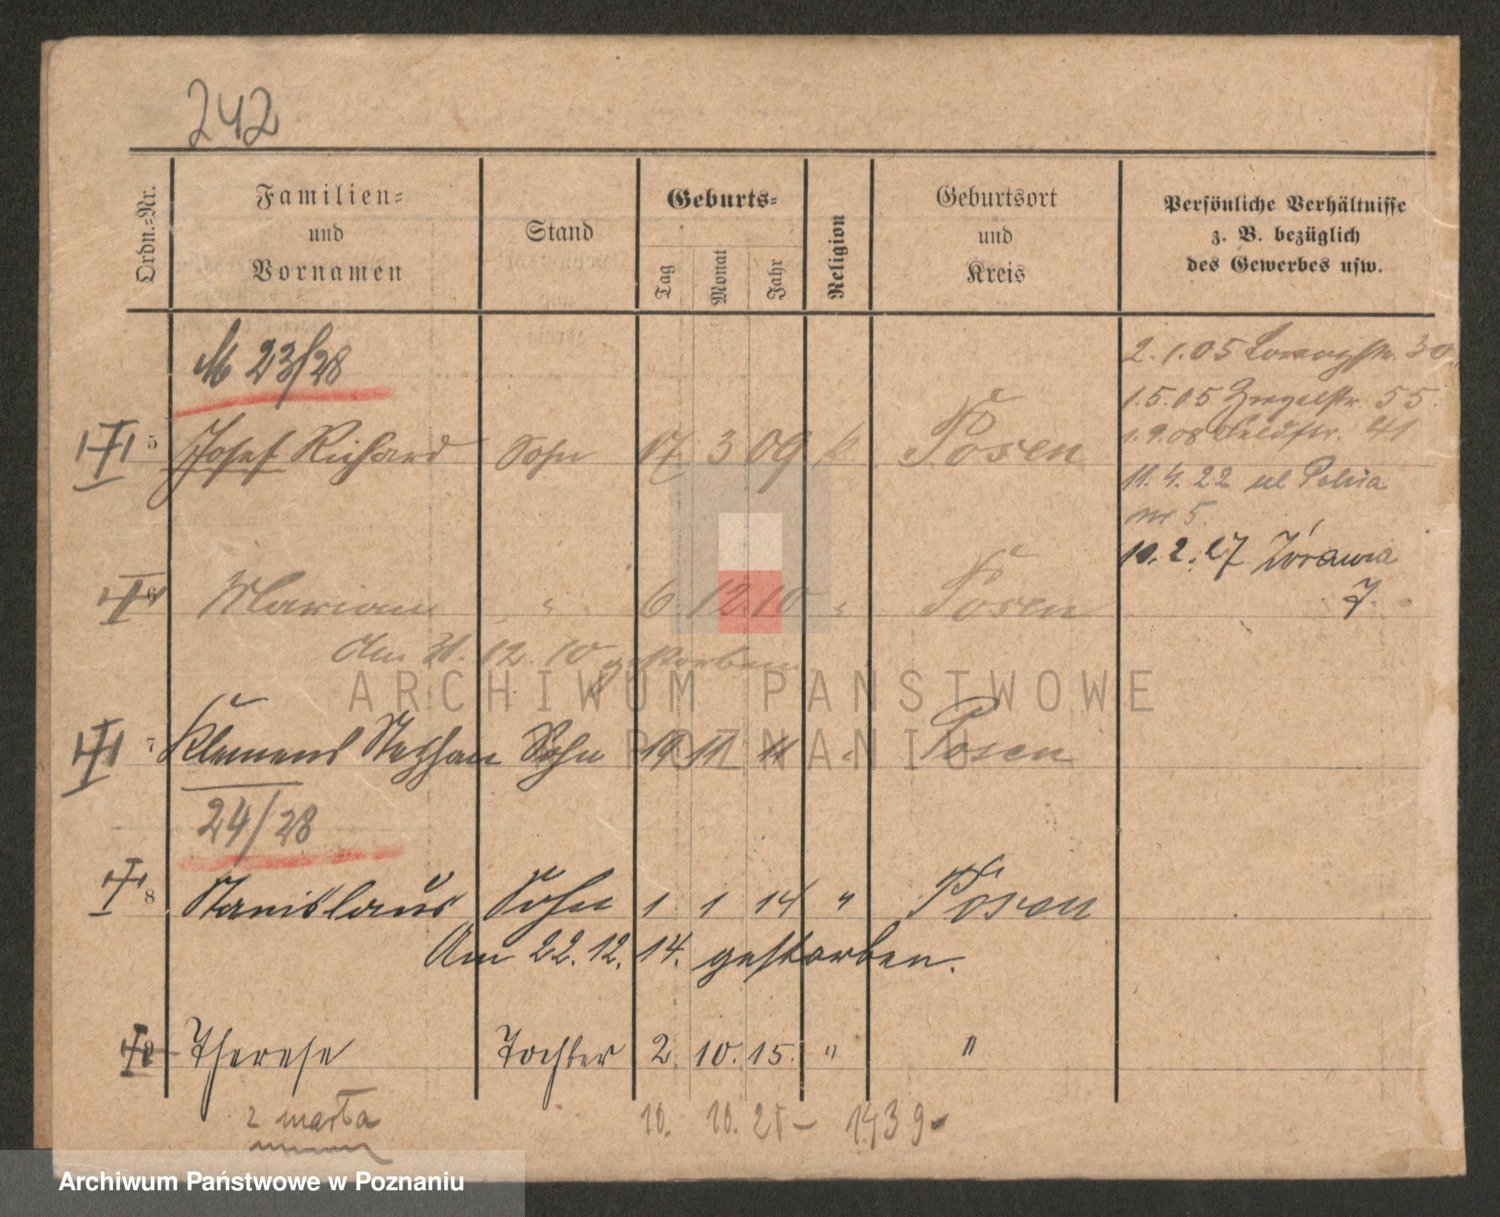 242
Ordn.-Nr.
Familien-
und
Vornamen
Stand
Geburts-
Tag
Monat
Jahr
Religion
Geburtsort
und
Kreis
Persönliche Verhältnisse
z. B. bezüglich
des Gewerbes usw.
M 23/28
2. 1. 05 Lorenzstr. 30
1. 5. 05 Ziegelstr. 55
1. 9. 08 Feldstr. 41
5 Josef Richard Sohn 17 3 09 k Posen
11. 4. 22 ul Polna
nr 5
10. 2. 27 Żórawia
7.
6 Marian " 6 12 10 " Posen
Am 31. 12. 10 gestorben
ARCHIWUM PAŃSTWOWE
W POZNANIU
7 Klemens Stephan Sohn 19 11 11 " Posen
24/28
8 Stanislaus Sohn 1 1 14 " Posen
Am 22. 12. 14. gestorben.
9 Therese Tochter 2. 10. 15. " "
zmarła
10. 10. 25 – 1439 –
Archiwum Państwowe w Poznaniu